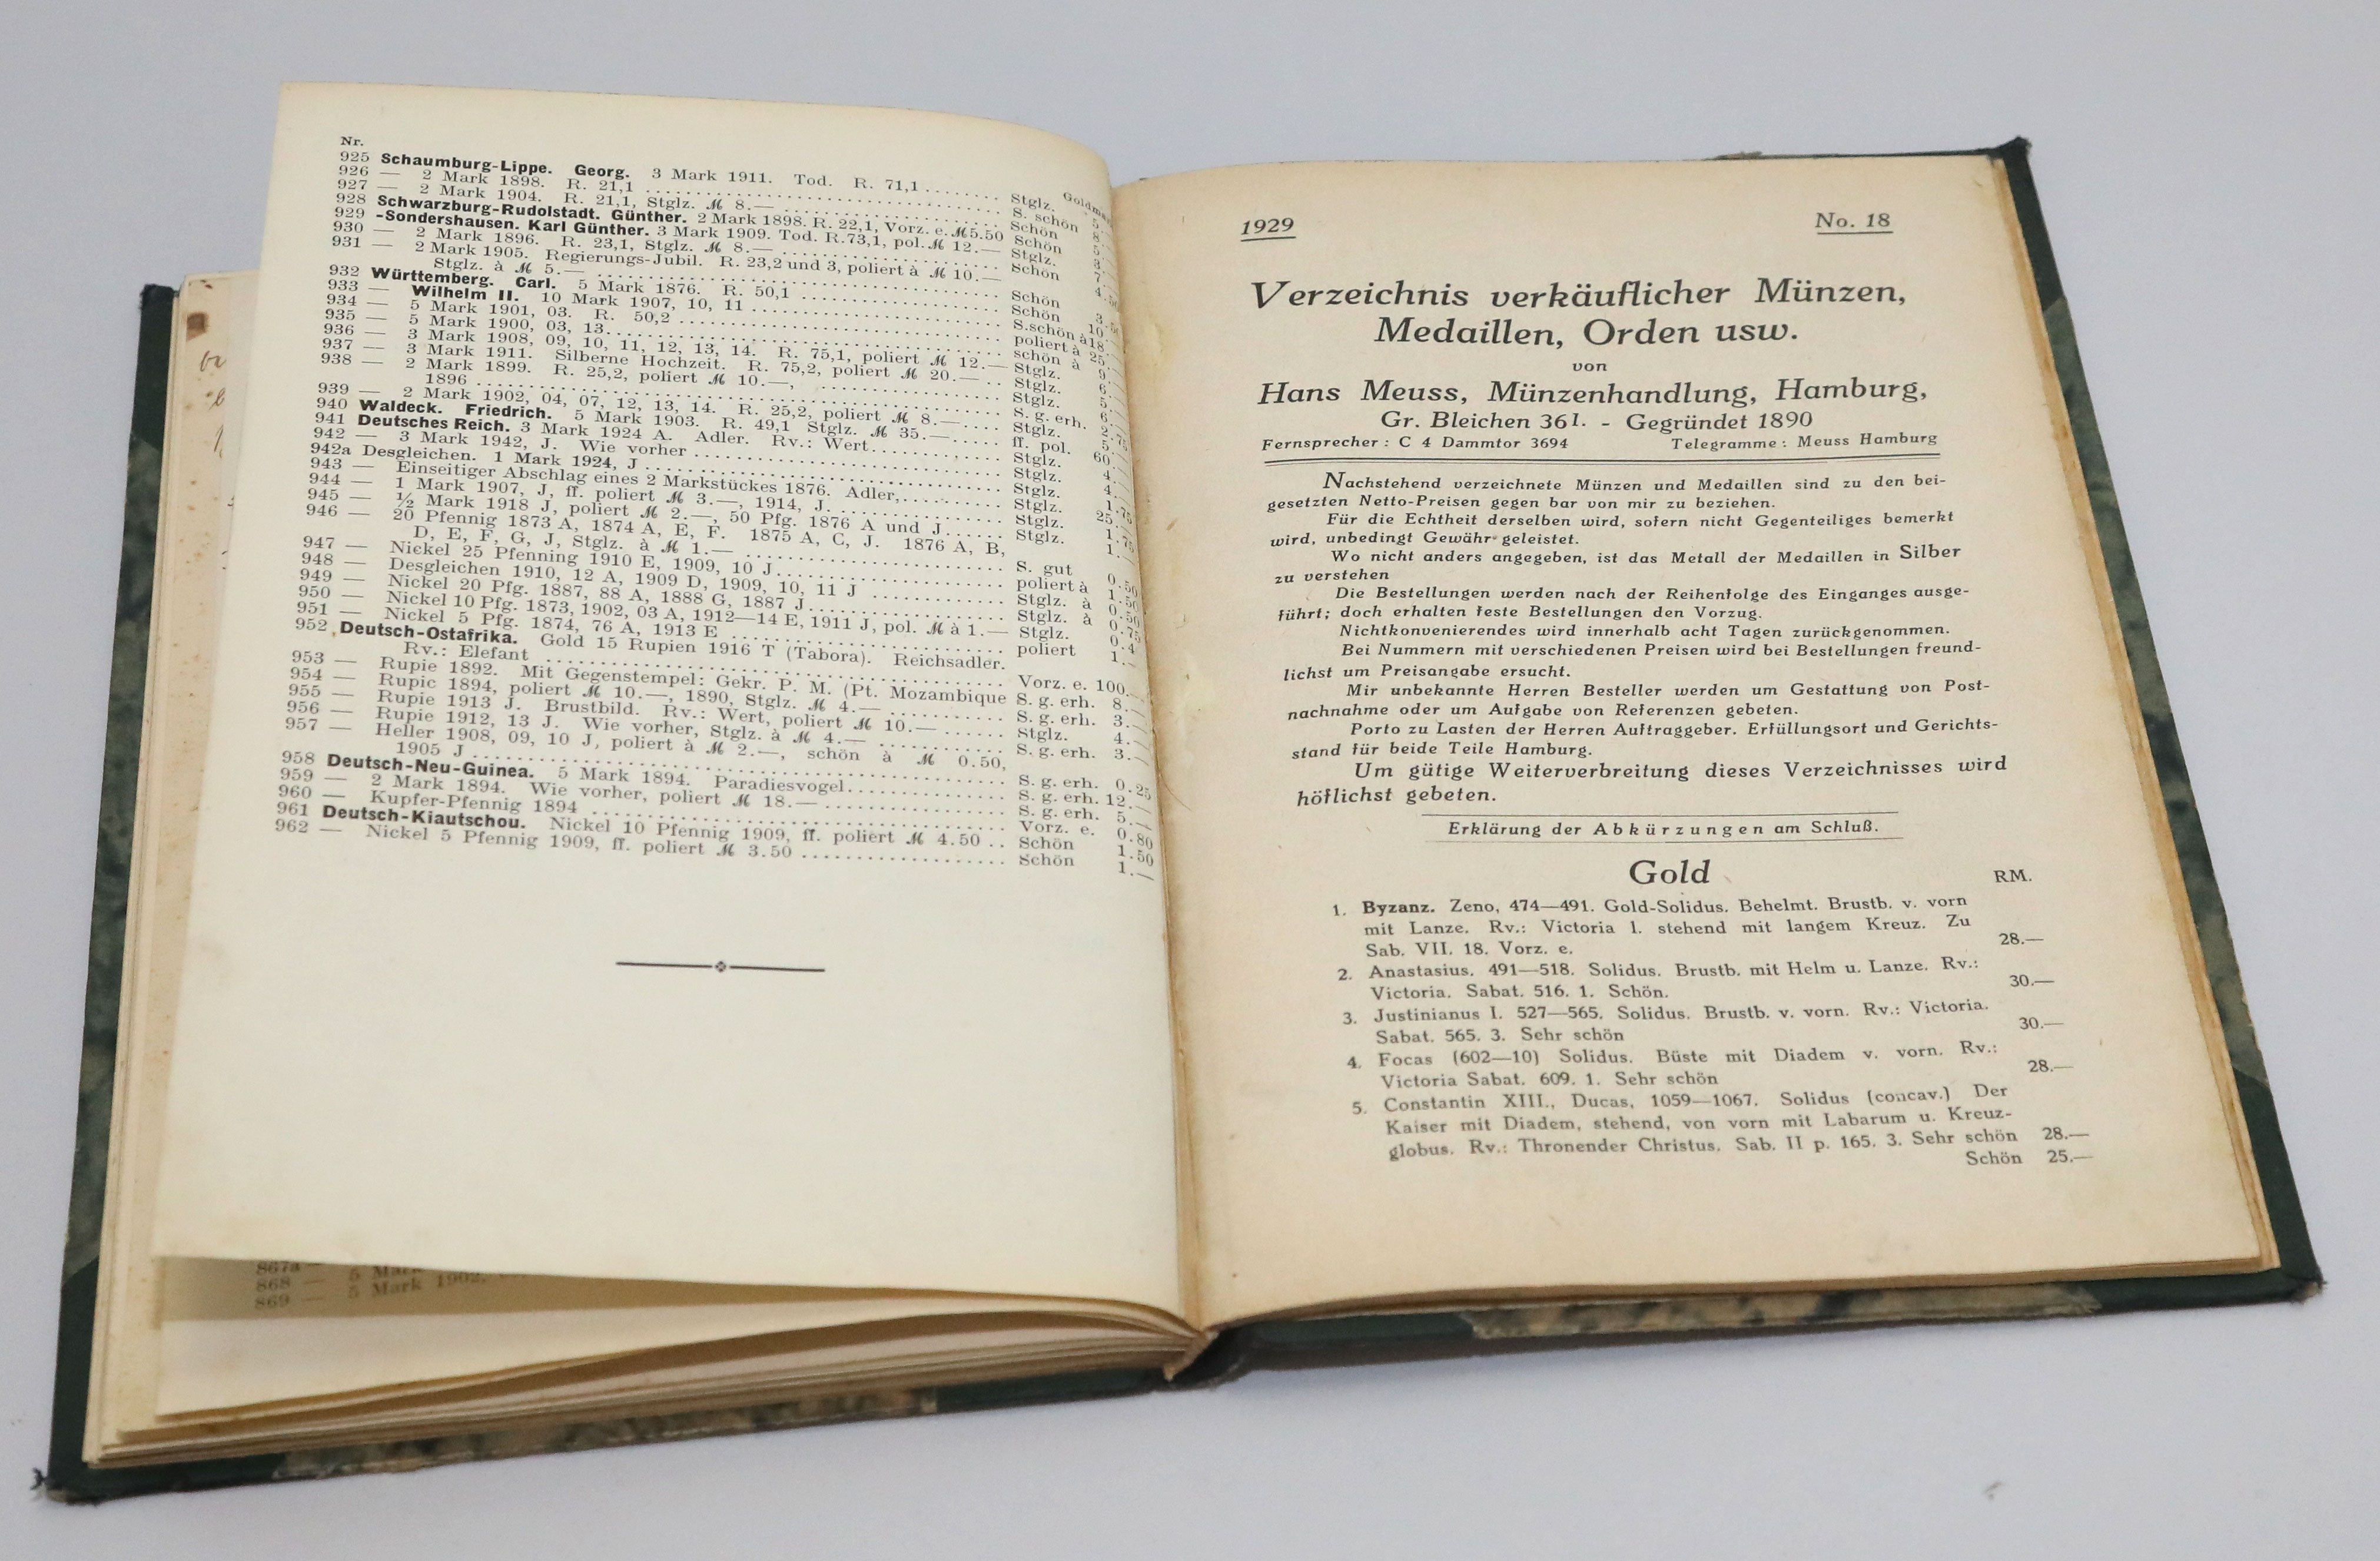 Nr.
Goldm
925 Schaumburg-Lippe. Georg. 3 Mark 1911. Tod. R. 71,1 ........ Stglz. 5
926 — 2 Mark 1898. R. 21,1 ........ S. schön 8
927 — 2 Mark 1904. R. 21,1, Stglz. ℳ 8.— ........ Schön 5
928 Schwarzburg-Rudolstadt. Günther. 2 Mark 1898. R. 22,1, Vorz. e. ℳ 5.50 Schön 3
929 -Sondershausen. Karl Günther. 3 Mark 1909. Tod. R. 73,1, pol. ℳ 12.— Stglz. 7
930 — 2 Mark 1896. R. 23,1, Stglz. ℳ 8.— ........ Schön 4.
931 — 2 Mark 1905. Regierungs-Jubil. R. 23,2 und 3, poliert à ℳ 10.—
Stglz. à ℳ 5.— ........ Schön 3.
932 Württemberg. Carl. 5 Mark 1876. R. 50,1 ........ Schön 10
933 — Wilhelm II. 10 Mark 1907, 10, 11 ........ S.schön à 18
934 — 5 Mark 1901, 03. R. 50,2 ........ poliert à 25
935 — 5 Mark 1900, 03, 13 ........ schön à 9
936 — 3 Mark 1908, 09, 10, 11, 12, 13, 14. R. 75,1, poliert ℳ 12.— Stglz. 6
937 — 3 Mark 1911. Silberne Hochzeit. R. 75,2, poliert ℳ 20.— .. Stglz.
938 — 2 Mark 1899. R. 25,2, poliert ℳ 10.—, ........ Stglz.
1896 ........ S. g. erh. 2.75
939 — 2 Mark 1902, 04, 07, 12, 13, 14. R. 25,2, poliert ℳ 8.— .... Stglz. 5
940 Waldeck. Friedrich. 5 Mark 1903. R. 49,1 Stglz. ℳ 35.— ..... ff. pol. 60
941 Deutsches Reich. 3 Mark 1924 A. Adler. Rv.: Wert ........ Stglz. 4
942 — 3 Mark 1942, J. Wie vorher ........ Stglz. 4
942a Desgleichen. 1 Mark 1924, J ........ Stglz. 1.75
943 — Einseitiger Abschlag eines 2 Markstückes 1876. Adler, ........ Stglz. 25
944 — 1 Mark 1907, J, ff. poliert ℳ 3.—, 1914, J. ........ Stglz. 1.75
945 — ½ Mark 1918 J, poliert ℳ 2.—, 50 Pfg. 1876 A und J ...... Stglz. 1.
946 — 20 Pfennig 1873 A, 1874 A, E, F. 1875 A, C, J. 1876 A, B,
D, E, F, G, J, Stglz. à ℳ 1.— ........ S. gut 0.50
947 — Nickel 25 Pfenning 1910 E, 1909, 10 J ........ poliert à 1.50
948 — Desgleichen 1910, 12 A, 1909 D, 1909, 10, 11 J ........ Stglz. à 0.50
949 — Nickel 20 Pfg. 1887, 88 A, 1888 G, 1887 J ........ Stglz. à 0.75
950 — Nickel 10 Pfg. 1873, 1902, 03 A, 1912—14 E, 1911 J, pol. ℳ à 1.— Stglz. 0.4
951 — Nickel 5 Pfg. 1874, 76 A, 1913 E ........ poliert 1.—
952 Deutsch-Ostafrika. Gold 15 Rupien 1916 T (Tabora). Reichsadler.
Rv.: Elefant ........ Vorz. e. 100.—
953 — Rupie 1892. Mit Gegenstempel: Gekr. P. M. (Pt. Mozambique S. g. erh. 8.—
954 — Rupic 1894, poliert ℳ 10.—, 1890, Stglz. ℳ 4.— ........ S. g. erh. 3.—
955 — Rupie 1913 J. Brustbild. Rv.: Wert, poliert ℳ 10.— ...... Stglz. 4.—
956 — Rupie 1912, 13 J. Wie vorher, Stglz. à ℳ 4.— ........ S. g. erh. 3.—
957 — Heller 1908, 09, 10 J, poliert à ℳ 2.—, schön à ℳ 0.50,
1905 J ........ S. g. erh. 0.25
958 Deutsch-Neu-Guinea. 5 Mark 1894. Paradiesvogel ........ S. g. erh. 12.—
959 — 2 Mark 1894. Wie vorher, poliert ℳ 18.— ........ S. g. erh. 5.—
960 — Kupfer-Pfennig 1894 ........ Vorz. e. 0.80
961 Deutsch-Kiautschou. Nickel 10 Pfennig 1909, ff. poliert ℳ 4.50 .. Schön 1.50
962 — Nickel 5 Pfennig 1909, ff. poliert ℳ 3.50 ........ Schön 1.—
867a —
868 — 5 Mark
869 — 5 Mark 1902.
1929
No. 18
Verzeichnis verkäuflicher Münzen,
Medaillen, Orden usw.
von
Hans Meuss, Münzenhandlung, Hamburg,
Gr. Bleichen 36 I. - Gegründet 1890
Fernsprecher: C 4 Dammtor 3694 Telegramme: Meuss Hamburg
Nachstehend verzeichnete Münzen und Medaillen sind zu den bei-
gesetzten Netto-Preisen gegen bar von mir zu beziehen.
Für die Echtheit derselben wird, sofern nicht Gegenteiliges bemerkt
wird, unbedingt Gewähr geleistet.
Wo nicht anders angegeben, ist das Metall der Medaillen in Silber
zu verstehen
Die Bestellungen werden nach der Reihenfolge des Einganges ausge-
führt; doch erhalten feste Bestellungen den Vorzug.
Nichtkonvenierendes wird innerhalb acht Tagen zurückgenommen.
Bei Nummern mit verschiedenen Preisen wird bei Bestellungen freund-
lichst um Preisangabe ersucht.
Mir unbekannte Herren Besteller werden um Gestattung von Post-
nachnahme oder um Aufgabe von Referenzen gebeten.
Porto zu Lasten der Herren Auftraggeber. Erfüllungsort und Gerichts-
stand für beide Teile Hamburg.
Um gütige Weiterverbreitung dieses Verzeichnisses wird
höflichst gebeten.
Erklärung der Abkürzungen am Schluß.
Gold
RM.
1. Byzanz. Zeno, 474—491. Gold-Solidus. Behelmt. Brustb. v. vorn
mit Lanze. Rv.: Victoria l. stehend mit langem Kreuz. Zu
Sab. VII. 18. Vorz. e. 28.—
2. Anastasius. 491—518. Solidus. Brustb. mit Helm u. Lanze. Rv.:
Victoria. Sabat. 516. 1. Schön. 30.—
3. Justinianus I. 527—565. Solidus. Brustb. v. vorn. Rv.: Victoria.
Sabat. 565. 3. Sehr schön 30.—
4. Focas (602—10) Solidus. Büste mit Diadem v. vorn. Rv.:
Victoria Sabat. 609. 1. Sehr schön 28.—
5. Constantin XIII., Ducas, 1059—1067. Solidus (concav.) Der
Kaiser mit Diadem, stehend, von vorn mit Labarum u. Kreuz-
globus. Rv.: Thronender Christus. Sab. II p. 165. 3. Sehr schön 28.—
Schön 25.—